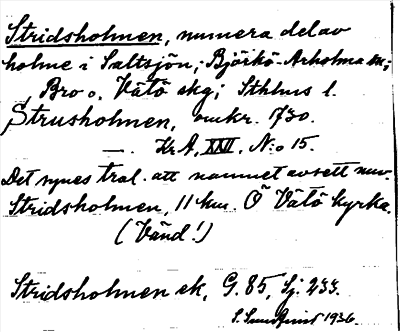 Stridsholmen, numera del av
holme i Saltsjön; Björkö-Arholma sn;
Bro o. Vätö skg; Sthlms l.
Strusholmen, omkr. 730.
—. Kr A, XXVI. N:o 15.
Det synes trol. att namnet avsett nuv.
Stridsholmen, 11 km. Ö Vätö kyrka.
(Vänd!)
Stridsholmen ek, G. 85, Sj. 233.
S. Sundqvist 1936.